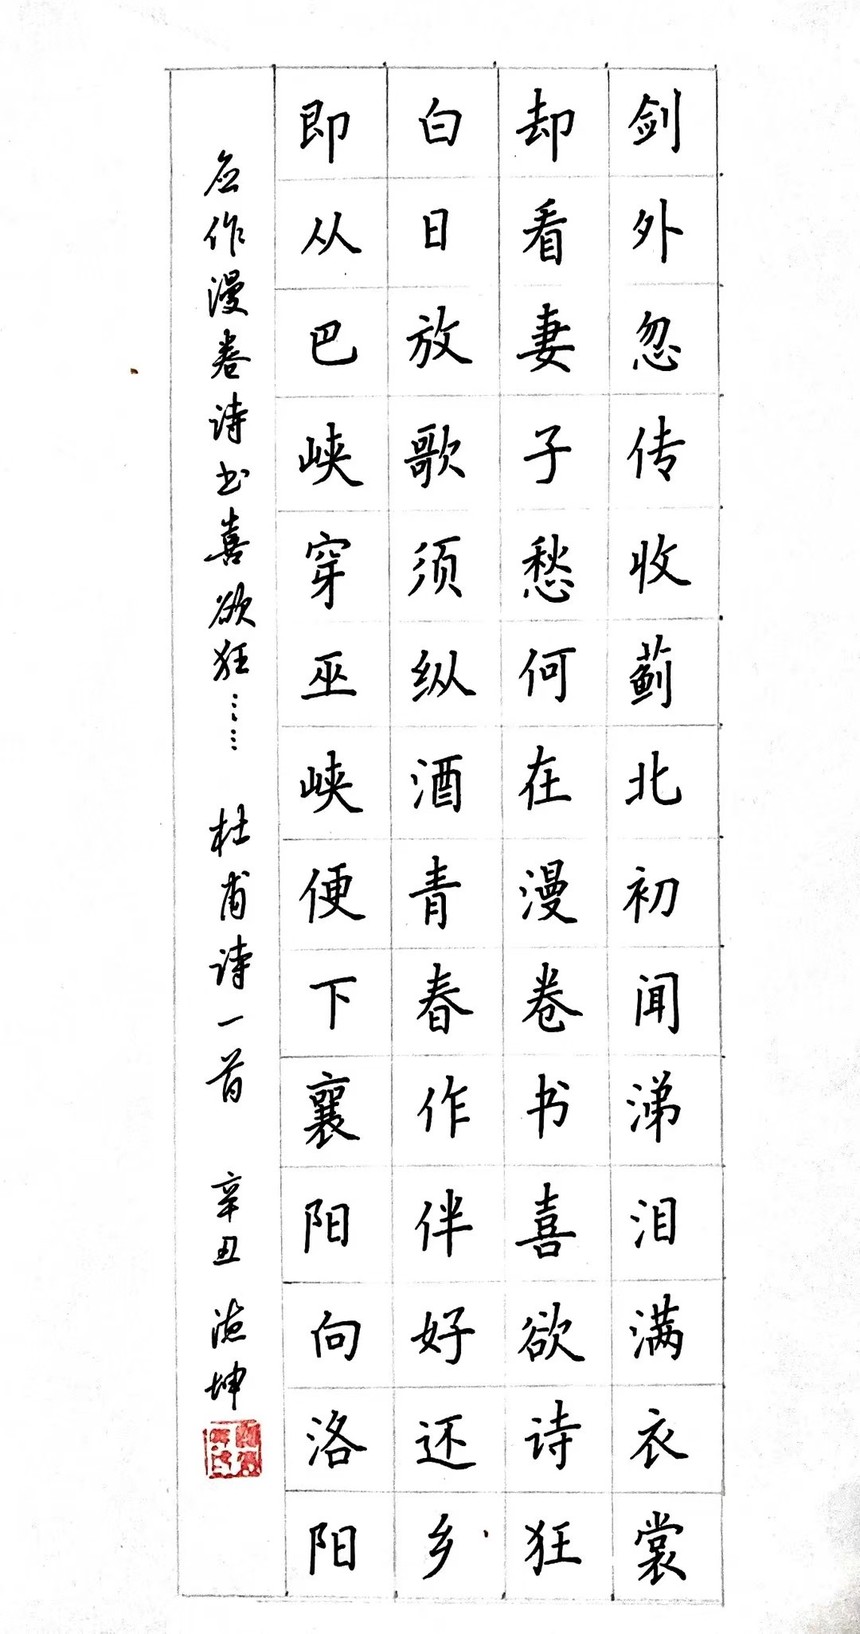 剑外忽传收蓟北初闻涕泪满衣裳
却看妻子愁何在漫卷书喜欲诗狂
白日放歌须纵酒青春作伴好还乡
即从巴峡穿巫峡便下襄阳向洛阳
应作漫卷诗书喜欲狂…… 杜甫诗一首 辛丑 坤